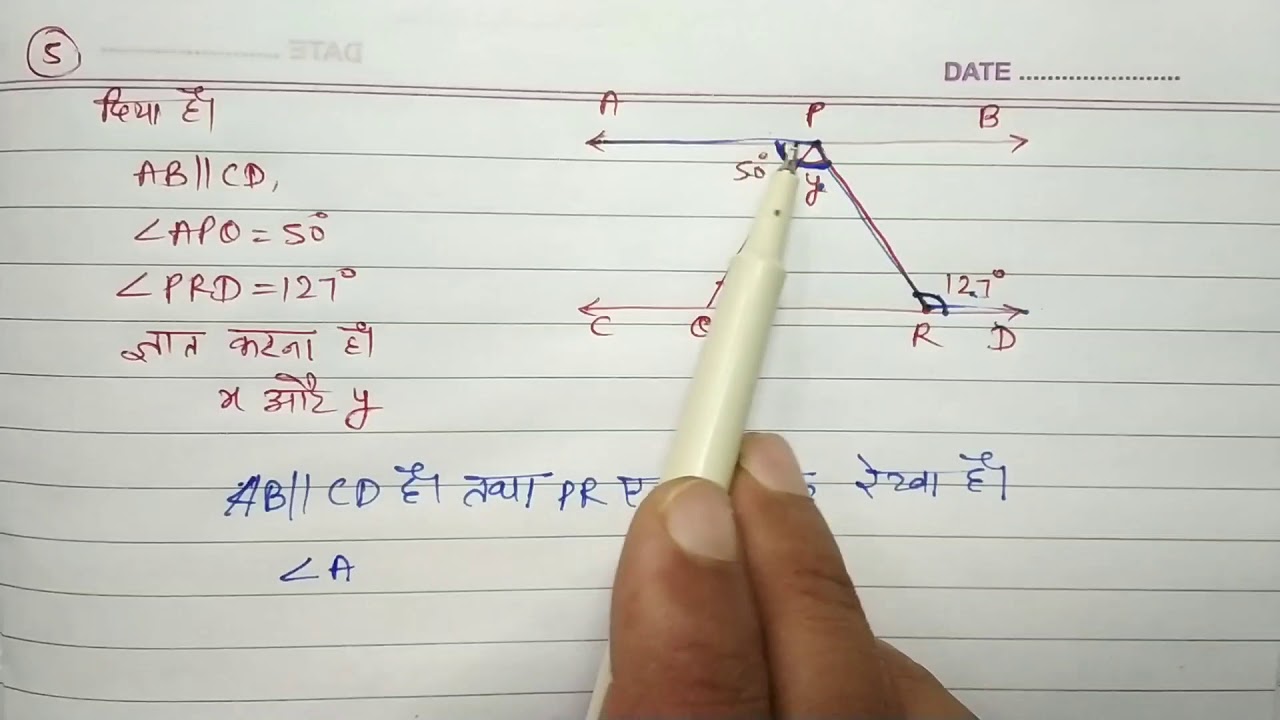 5
DATE
दिया है।
AB||CD,
∠APQ = 50°
∠PRD = 127°
ज्ञात करना है।
x और y
A P B
50° y
127°
C Q R D
AB || CD है। तथा PR रेखा है।
∠A